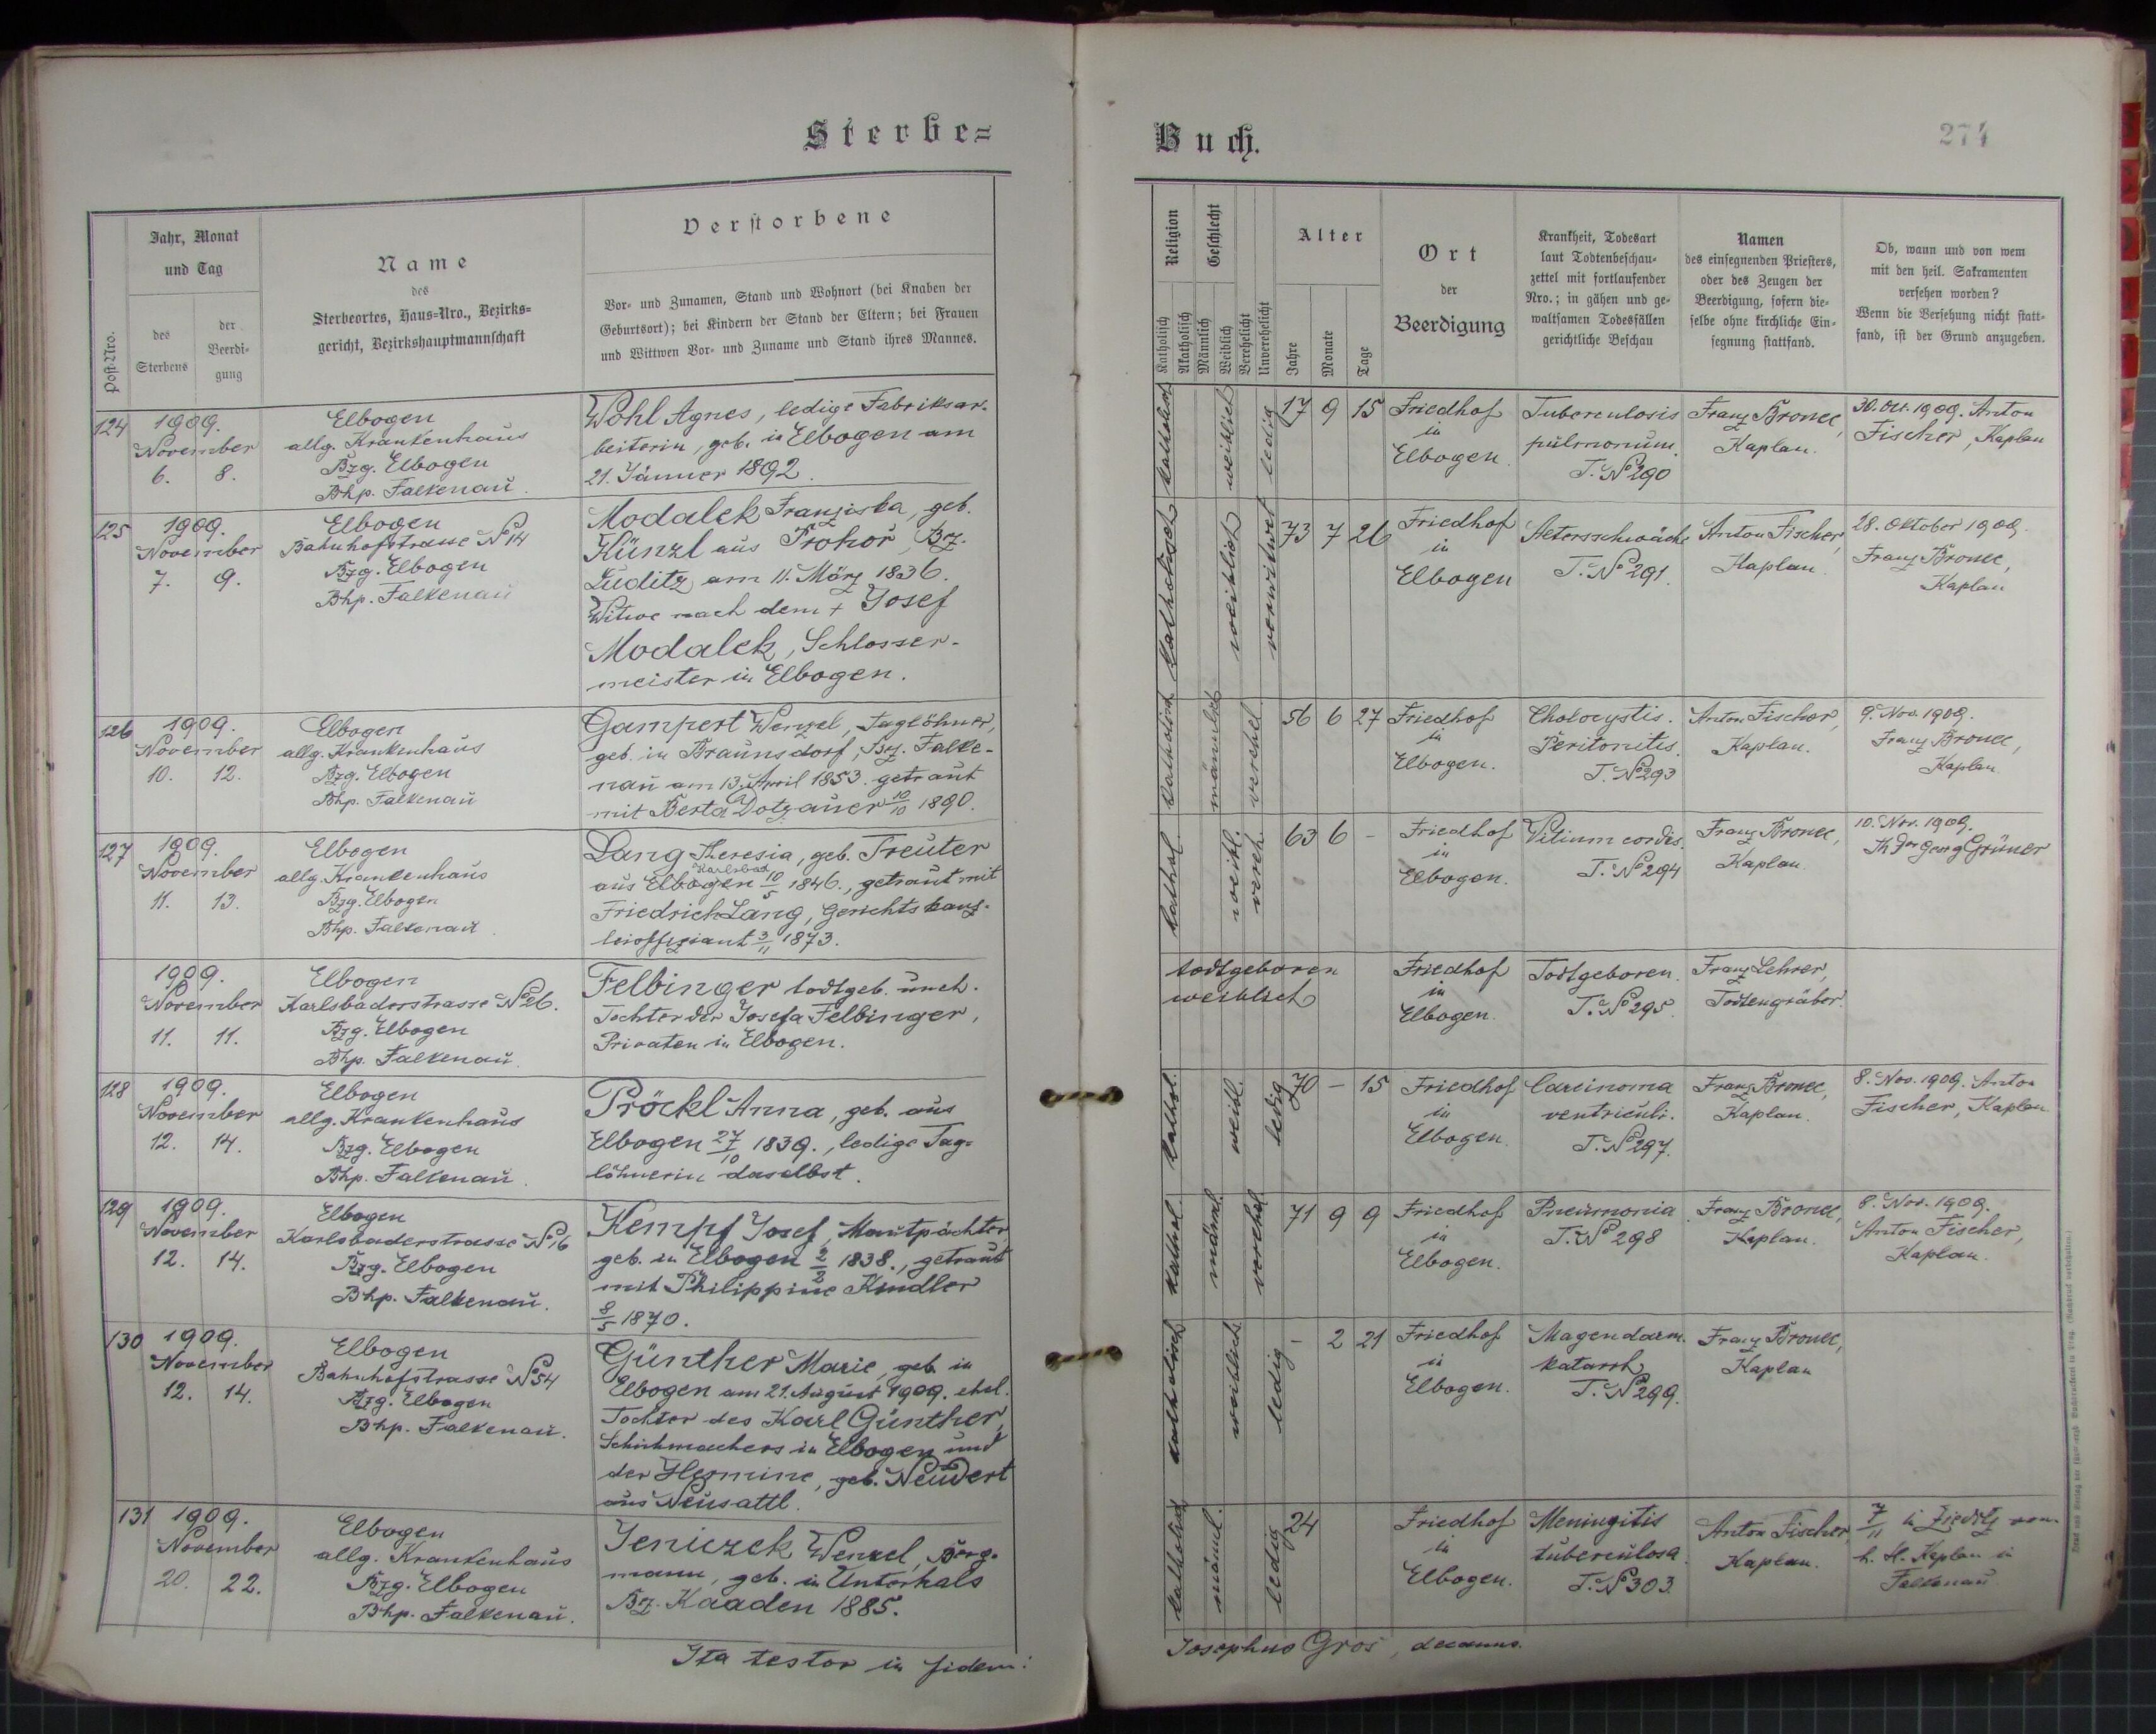 Sterbe=
Buch.
274
Post-Nro.
Jahr, Monat
und Tag
des
Sterbens
der
Beerdi-
gung
Name
des
Sterbeortes, Haus-Nro., Bezirks-
gericht, Bezirkshauptmannschaft
Verstorbene
Vor- und Zunamen, Stand und Wohnort (bei Knaben der
Geburtsort); bei Kindern der Stand der Eltern; bei Frauen
und Wittwen Vor- und Zuname und Stand ihres Mannes.
Religion
Katholisch
Akatholisch
Geschlecht
Männlich
Weiblich
Verehelicht
Unverehelicht
Alter
Jahre
Monate
Tage
Ort
der
Beerdigung
Krankheit, Todesart
laut Todtenbeschau-
zettel mit fortlaufender
Nro.; in gähen und ge-
waltsamen Todesfällen
gerichtliche Beschau
Namen
des einsegnenden Priesters,
oder des Zeugen der
Beerdigung, sofern die-
selbe ohne kirchliche Ein-
segnung stattfand.
Ob, wann und von wem
mit den heil. Sakramenten
versehen worden?
Wenn die Versehung nicht statt-
fand, ist der Grund anzugeben.
124
1909.
November
6. 8.
Elbogen
allg. Krankenhaus
Bzg. Elbogen
Bhp. Falkenau.
Wohl Agnes, ledige Fabriksar-
beiterin, geb. in Elbogen am
21. Jänner 1892.
katholisch
weiblich
ledig
17 9 15
Friedhof
in
Elbogen.
Tuberculosis
pulmonum.
T. № 290
Franz Bronec,
Kaplan.
30. Okt. 1909. Anton
Fischer, Kaplan
125
1909.
November
7. 9.
Elbogen
Bahnhofstrasse № 14
Bzg. Elbogen
Bhp. Falkenau
Modalek Franziska, geb.
Künzl aus Prohor, Bz.
Luditz am 11. März 1836.
Witwe nach dem + Josef
Modalek, Schlosser-
meister in Elbogen.
katholisch
weiblich
verwitwet
73 7 26
Friedhof
in
Elbogen
Altersschwäche
T. № 291.
Anton Fischer,
Kaplan.
28. Oktober 1909.
Franz Bronec,
Kaplan
126
1909.
November
10. 12.
Elbogen
allg. Krankenhaus
Bzg. Elbogen
Bhp. Falkenau
Gampert Wenzel, Taglöhner,
geb. in Braunsdorf, Bz. Falke-
nau am 13. April 1853. getraut
mit Berta Dotzauer 10/10 1890.
katholisch
männlich
verehel
56 6 27
Friedhof
in
Elbogen.
Cholocystis.
Peritonitis.
T. № 293
Anton Fischer,
Kaplan.
9. Nov. 1909.
Franz Bronec,
Kaplan
127
1909.
November
11. 13.
Elbogen
allg. Krankenhaus
Bzg. Elbogen
Bhp. Falkenau.
Lang Theresia, geb. Treuter
Karlsbad
aus Elbogen 10/5 1846., getraut mit
Friedrich Lang, Gerichtskanz-
leioffiziant 3/11 1873.
kathol.
weibl.
vereh.
63 6 -
Friedhof
in
Elbogen.
Vitium cordis.
T. № 294
Franz Bronec,
Kaplan
10. Nov. 1909.
Georg Grüner
1909.
November
11. 11.
Elbogen
Karlsbaderstrasse № 26.
Bzg. Elbogen
Bhp. Falkenau.
Felbinger todtgeb. uneh.
Tochter der Josefa Felbinger,
Privaten in Elbogen.
todtgeboren
weiblich
Friedhof
in
Elbogen.
Todtgeboren.
T. № 295.
Franz Lehrer,
Todtengräber.
128
1909.
November
12. 14.
Elbogen
allg. Krankenhaus
Bzg. Elbogen
Bhp. Falkenau.
Pröckl Anna, geb. aus
Elbogen 27/10 1839., ledige Tag-
löhnerin daselbst.
kathol.
weibl.
ledig
70 - 15
Friedhof
in
Elbogen.
Carcinoma
ventriculi.
T. № 297.
Franz Bronec,
Kaplan.
8. Nov. 1909. Anton
Fischer, Kaplan.
129
1909.
November
12. 14.
Elbogen
Karlsbaderstrasse № 16
Bzg. Elbogen
Bhp. Falkenau.
Kempf Josef, Mautpächter,
geb. in Elbogen 2/2 1838., getraut
mit Philippine Kindler
8/5 1870.
kathol.
männl.
verehel.
71 9 9
Friedhof
in
Elbogen.
Pneumonia
T. № 298
Franz Bronec,
Kaplan.
8. Nov. 1909.
Anton Fischer,
Kaplan.
130
1909.
November
12. 14.
Elbogen
Bahnhofstrasse № 54
Bzg. Elbogen
Bhp. Falkenau.
Günther Marie, geb. in
Elbogen am 21. August 1909. ehel.
Tochter des Karl Günther,
Schuhmachers in Elbogen und
der Hermine, geb. Neudert
aus Neusattl.
katholisch
weiblich
ledig
- 2 21
Friedhof
in
Elbogen.
Magendarm-
katarrh
T. № 299.
Franz Bronec,
Kaplan
131
1909.
November
20. 22.
Elbogen
allg. Krankenhaus
Bzg. Elbogen
Bhp. Falkenau.
Jeniczek Wenzel, Berg-
mann, geb. in Unterhals
Bz. Kaaden 1885.
katholisch
männl.
ledig
24
Friedhof
in
Elbogen.
Meningitis
tuberculosa.
T. № 303.
Anton Fischer,
Kaplan.
7/11 in Zieditz vom
h. H. Kaplan in
Falkenau
Ita testor in fidem:
Josephus Gros, decanus.